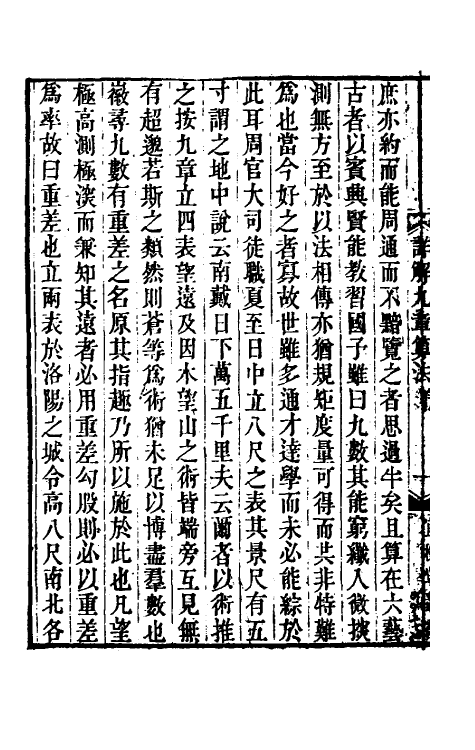 庶亦約而能周通而不黯覽之者思過半矣且算在六藝
古者以賓興賢能教習國子雖曰九數其能窮纖入微探
測無方至於以法相傳亦猶規矩度量可得而共非特難
爲也當今好之者寡故世雖多通才達學而未必能綜於
此耳周官大司徒職夏至日中立八尺之表其景尺有五
寸謂之地中說云南戴日下萬五千里夫云爾者以術推
之按九章立四表望遠及因木望山之術皆端旁互見無
有超邈若斯之類然則蒼等爲術猶未足以博盡羣數也
徽尋九數有重差之名原其指趣乃所以施於此也凡望
極高測極深而兼知其遠者必用重差勾股則必以重差
爲率故曰重差也立兩表於洛陽之城令高八尺南北各
詳解九章算法